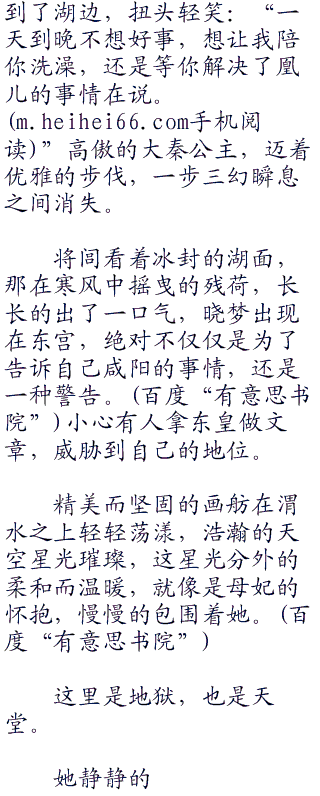 到了湖边，扭头轻笑：“一
天到晚不想好事，想让我陪
你洗澡，还是等你解决了凰
儿的事情在说。
(m.heihei66.com手机阅
读)”高傲的大秦公主，迈着
优雅的步伐，一步三幻瞬息
之间消失。
将闾看着冰封的湖面，
那在寒风中摇曳的残荷，长
长的出了一口气，晓梦出现
在东宫，绝对不仅仅是为了
告诉自己咸阳的事情，还是
一种警告。(百度“有意思书
院”)小心有人拿东皇做文
章，威胁到自己的地位。
精美而坚固的画舫在渭
水之上轻轻荡漾，浩瀚的天
空星光璀璨，这星光分外的
柔和而温暖，就像是母妃的
怀抱，慢慢的包围着她。(百
度“有意思书院”)
这里是地狱，也是天
堂。
她静静的